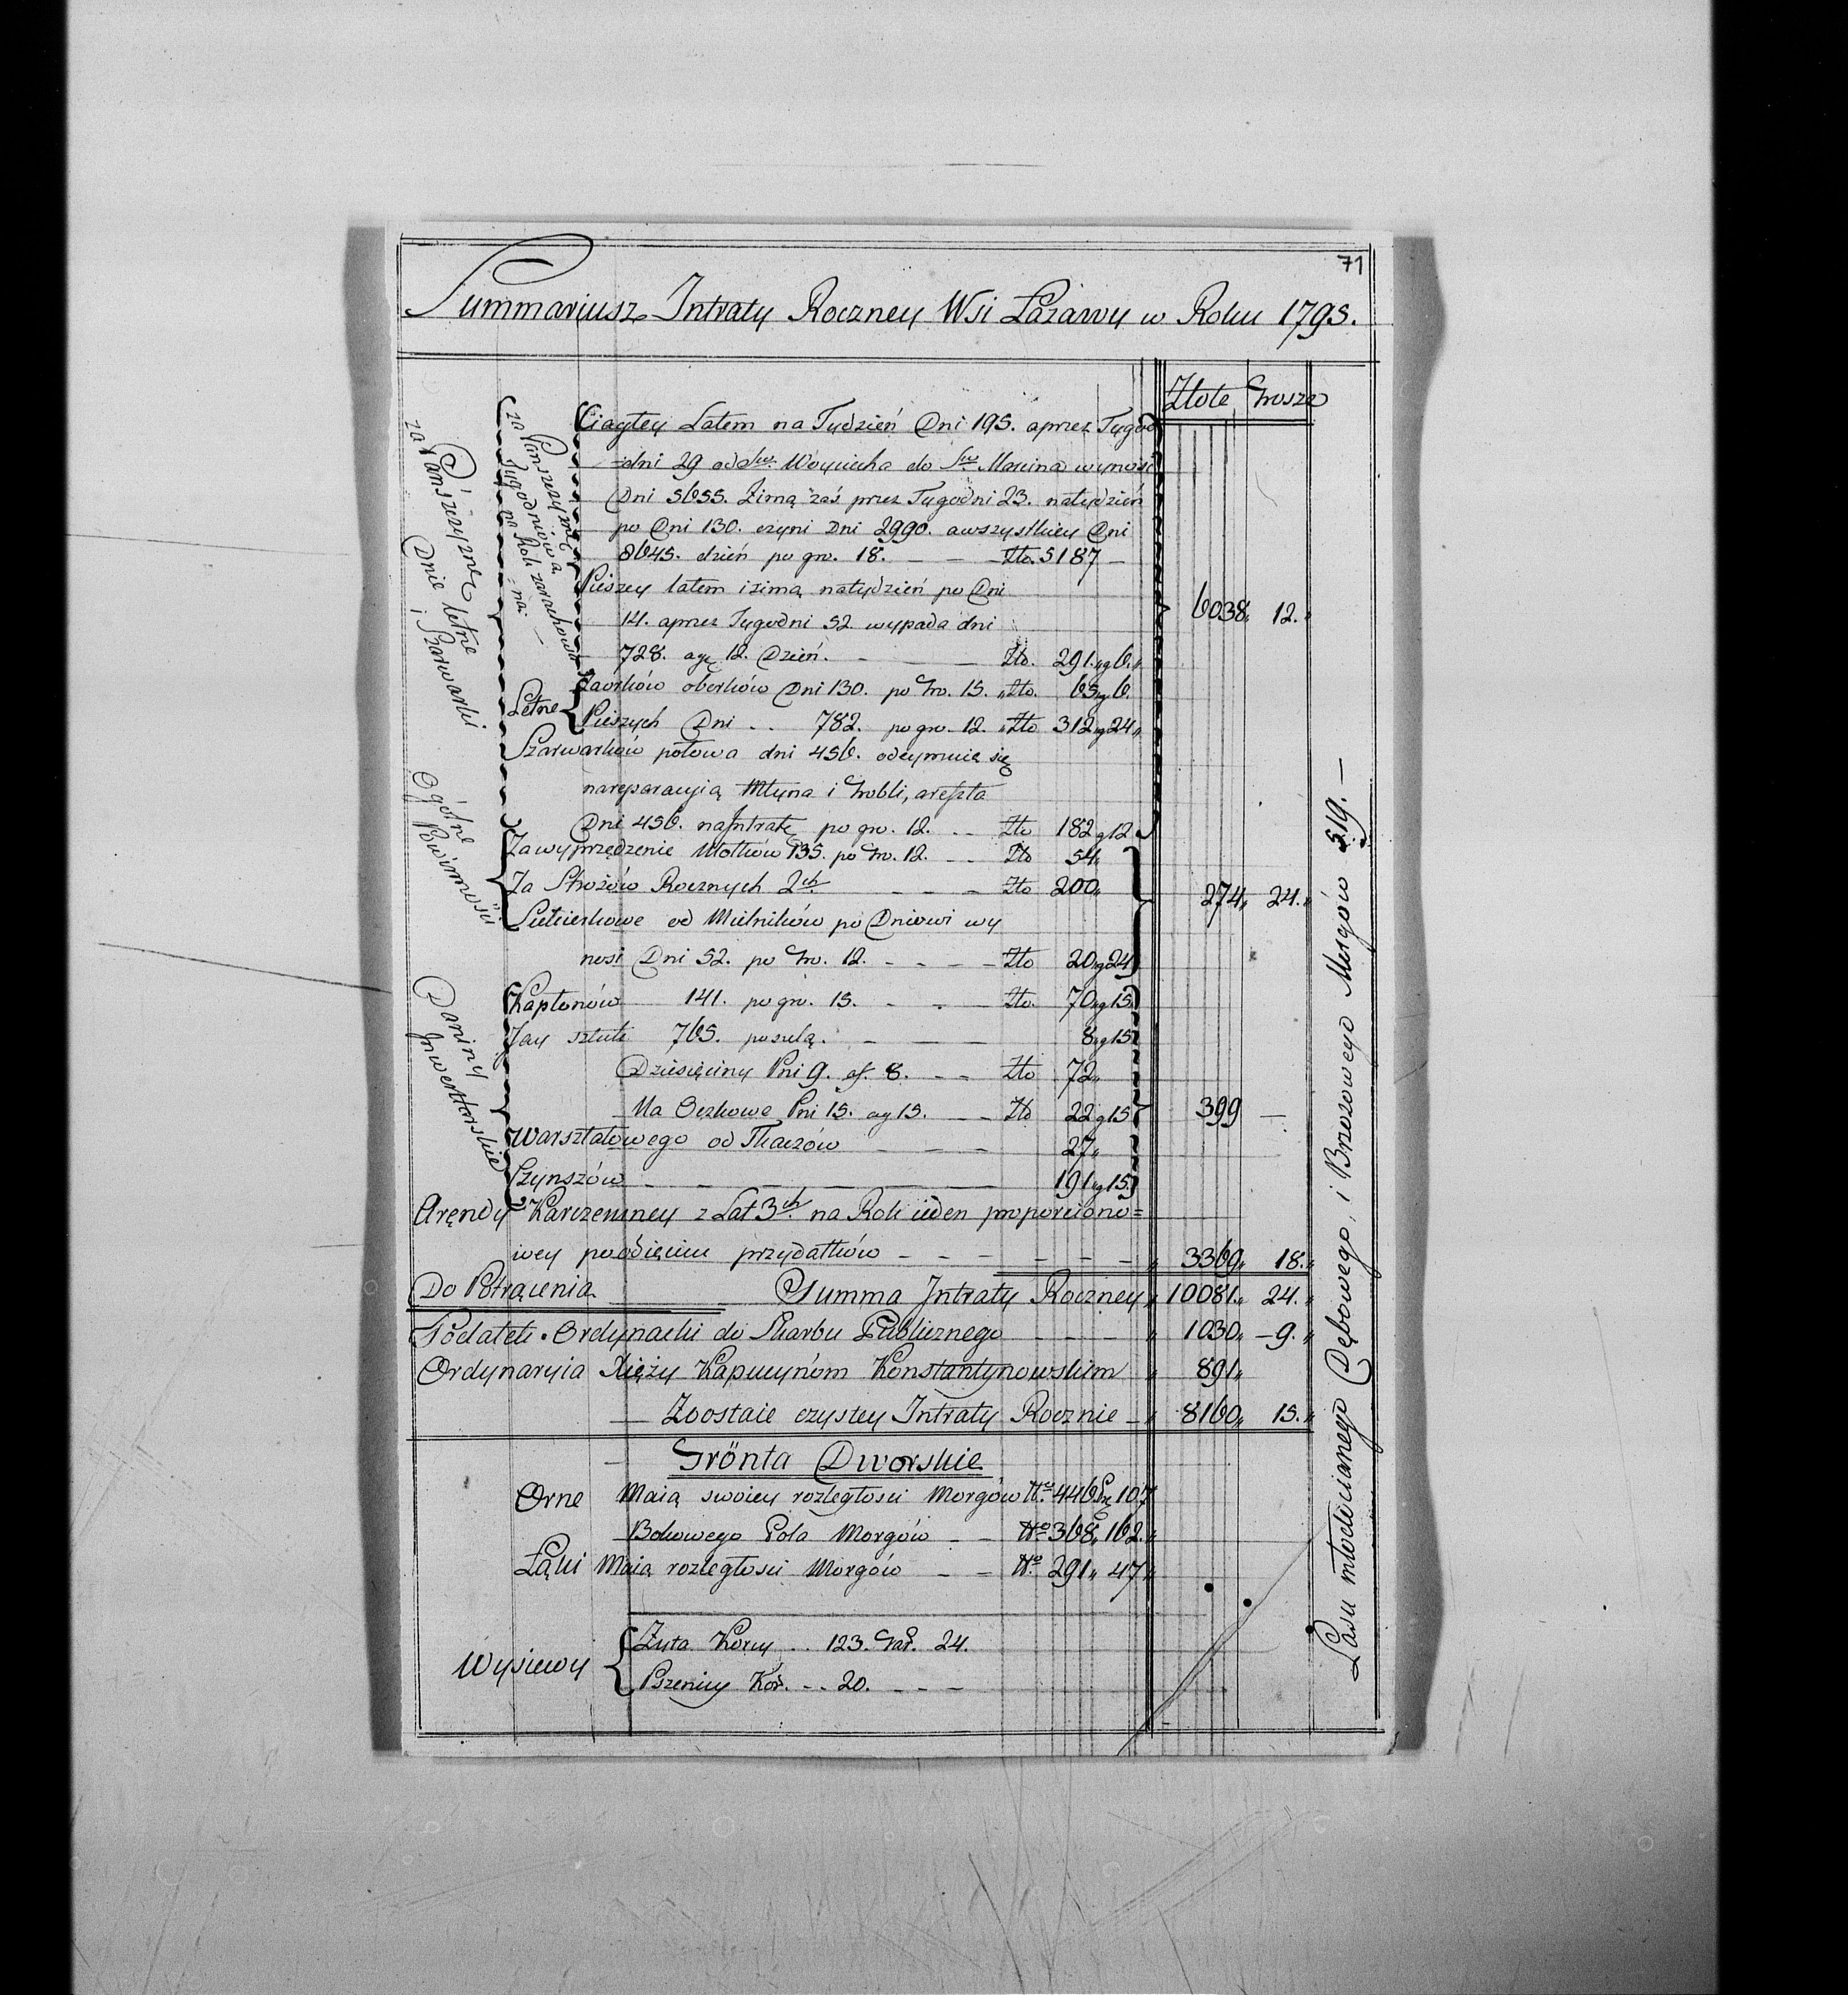 71
Summariusz Intraty Roczney Wsi Łazawy w Roku 1795.
Złote Grosze
za Pańszczyznę Dnie letne i Szarwarki
za Pańszczyznę Tygodniową na Rok zarachowa
=na
Ciągłey Latem na Tydzień Dni 195. a przez Tygod
=dni 29 od Sw. Woyciecha do Sw. Marcina wynosi
Dni 5655. Zimą zaś przez Tygodni 23. na tydzień
po Dni 130. czyni Dni 2990. a wszystkiey Dni
8645. dzień po gro. 18. — — Zło. 5187 —
Pieszey latem i zimą na tydzień po Dni
14. a przez Tygodni 52 wypada dni
728. a g. 12. Dzień. — — Zło. 291. g 6.
6038. 12.
Letne
Zaorków oborków Dni 130. po Gro. 15. Zło. 65 g 6.
Pieszych Dni . . 782. po gro. 12. Zło 312 g 24
Szarwarków połowa dni 456. odeymuie się
na reparacyią Młyna i Grobli, a reszta
Dni 456. na Intratę po gro. 12. — Zło 182 g 12
Ogólne Powinności
Za wyprzędzenie Motków 135. po Gro. 12. — Zło 54
Za Stróżów Rocznych 2ch — — — Zło 200
274 24.
od Mielników po Dniowi wy
nosi Dni 52. po Gro. 12. — — — Zło 20 g 24
Daniny Inwentarskie
Kapłonów 141. po gro. 15. — — Zło. 70 g 15
Jay sztuk 765. — — 8 g 15
Dziesięciny Pni 9. af. 8. — — Zło 72
Na Oczkowe Pni 15. a g 15. — — Zło 22 g 15
399 —
Warsztatowego od Tkaczów — — — 27
Czynszów — — — — 191 g 15
Arendy Karczemney z Lat 3ch na Rok ieden proporciono=
wey po odięciu przydatków — — — — — 3369 18.
Do Potrącenia. Summa Intraty Roczney 10081. 24.
Podatek Ordynacki do Skarbu Publicznego — — — 1030 — 9.
Ordynaryia Xięży Kapucynóm Konstantynowskim 891
— Zoostaie czystey Intraty Rocznie — 8160 15.
Grönta Dworskie
Orne Maią swoiey rozległosci Morgów No. 446 Prę 107
Bokowego Pola Morgów — — No 368. 162.
Łąki Maią rozległosci Morgów — — No. 291. 47
Wysiewy
Żyta Korcy . . 123. Gar. 24.
Pszenicy Kor. - - 20. — — —
Lasu młodocianego Dębowego, i Brzozowego Morgów 519. —